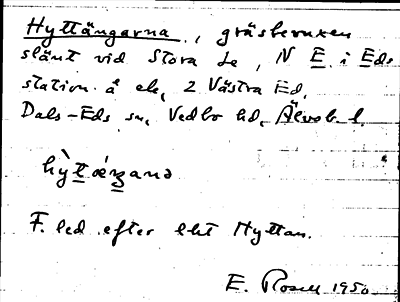 Hyttängarna, gräsbevuxen
slänt vid Stora Le, N E. i Eds
station å ek. 2 Västra Ed,
Dals-Eds sn, Vedbo hd, Älvsb. l.
F. led efter lht Hyttan.
E. Rosell 1950